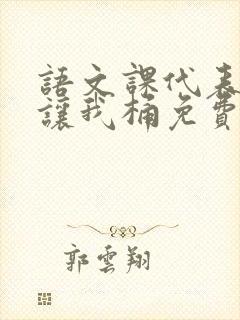 語文課代表
讓我桶免費
郭雲翔